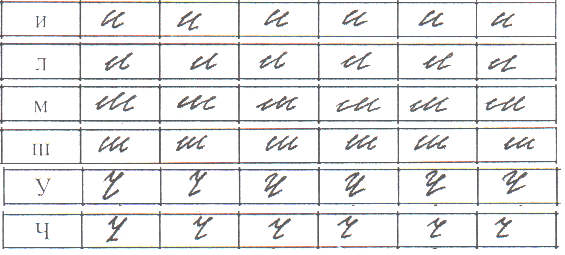 и и и и и и и
л л л л л л л
м м м м м м м
ш ш ш ш ш ш ш
У У У У У У У
Ч Ч Ч Ч Ч Ч Ч